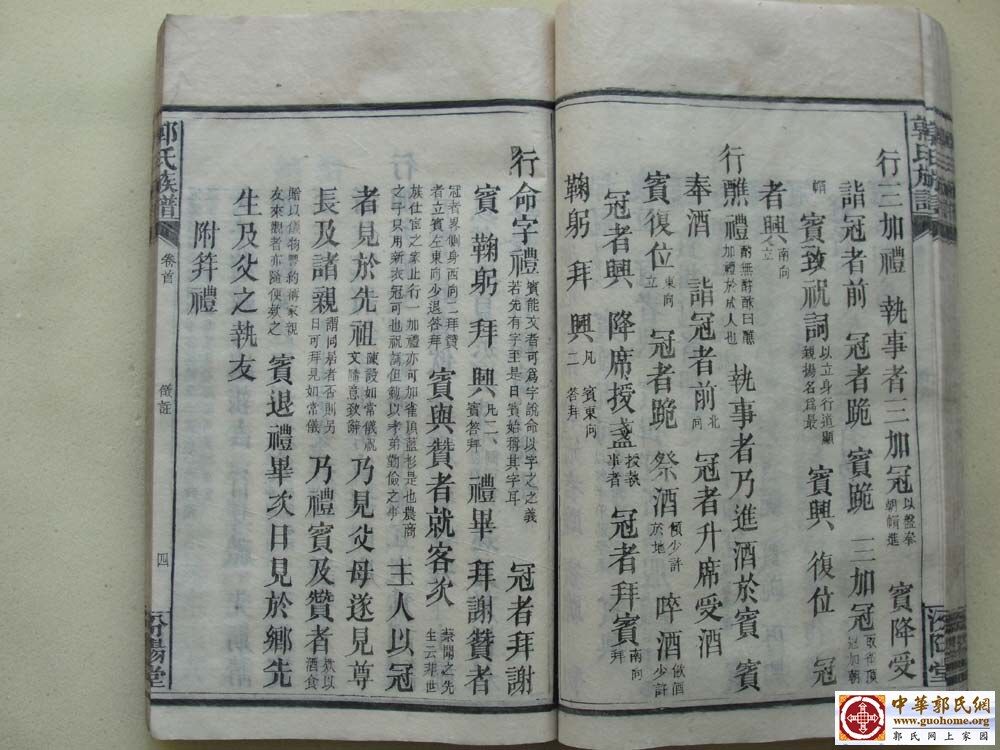 郭氏族譜
汾陽堂
行三加禮 執事者三加冠以盤奉朝帽進 賓降受
詣冠者前 冠者跪 賓跪 三加冠
帽 賓致祝詞以立身行道顯親揚名爲最 賓興 復位 冠
者興南向立
行醮禮酌無酬酢曰醮加禮於成人也 執事者乃進酒於賓 賓
奉酒 詣冠者前北向 冠者升席受酒
賓復位東向立 冠者跪 祭酒傾少許於地 啐酒飲酒少許
冠者興 降席授盞授執事者 冠者拜賓南向拜
鞠躬 拜 興凡二 賓東向答拜
行命字禮賓能文者可爲字說命以字之之義若先有字至是日賓始稱其字耳 冠者拜謝
賓 鞠躬 拜 興凡二賓答拜 禮畢 拜謝贊者
冠者畧側身西向二拜贊者立賓左東向少退答拜 賓與贊者就客次蔡聞之先生云非世
族仕宦之家止行一加禮亦可加雀頂藍衫是也農商之子只用新衣冠可也祝詞但勉以孝弟勤儉之事 主人以冠
者見於先祖陳設如常儀祝文隨意致辭 乃見父母遂見尊
長及諸親謂同居者否則另日可拜見如常儀 乃禮賓及贊者款以酒食
贈以儀物豐約稱家親友來觀者亦隨便款之 賓退禮畢次日見於鄉先
生及父之執友
附筓禮
郭氏族譜
卷首
儀註
四
汾陽堂
中華郭氏網
www.guohome.org
郭氏网上家园